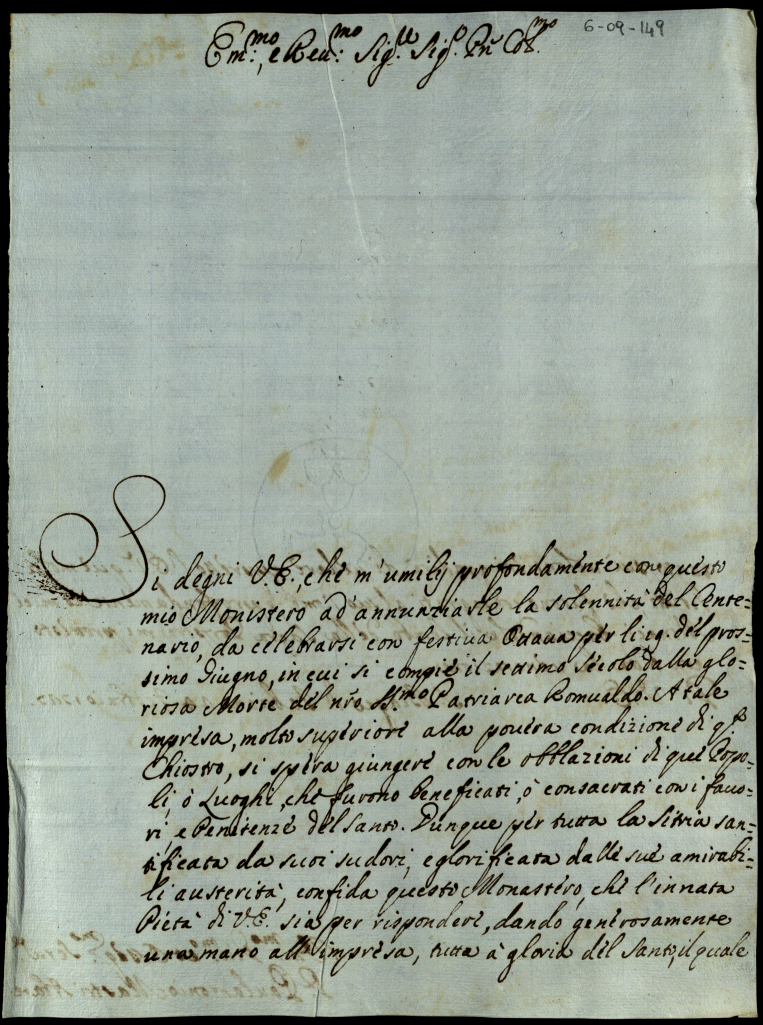 6-09-149
Em:mo, e Reu:mo Sig:re Sig:e Pñ Col:mo
Si degni V.E., che m'umilij profondamente con questo
mio Monistero ad'annunziarle la solennità del Cente=
nario, da celebrarsi con festiua Ottaua per li 19. del pros=
simo Giugno, in cui si compie il settimo Secolo dalla glo=
riosa Morte del nr̃o SS.mo Patriarca Romualdo. A tale
impresa, molto superiore alla pouera condizione di q.sto
Chiostro, si spera giungere con le obblazioni di que' Popo=
li, ò Luoghi, che furono beneficati, ò consacrati con i fauo=
ri, e Penitenze del Santo. Dunque per tutta la Sitria san=
tificata da suoi sudori, e glorificata dalle sue amirabi=
li austerità, confida questo Monastero, che l'innata
Pietà di V.E. sia per rispondere, dando generosamente
una mano all'impresa, tutta à gloria del Santo, il quale